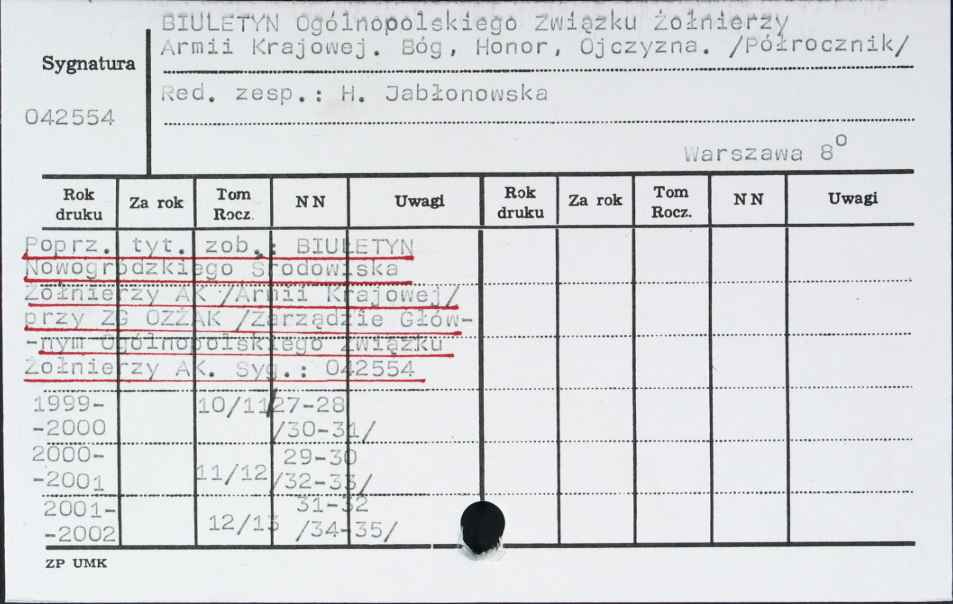 BIULETYN Ogólnopolskiego Związku Żołnierzy
Armii Krajowej. Bóg, Honor, Ojczyzna. /Półrocznik/
Sygnatura
Red. zesp.: H. Jabłonowska
042554
Warszawa 8o
Rok druku Za rok Tom Rocz. NN Uwagi Rok druku Za rok Tom Rocz. NN Uwagi
Poprz. tyt. zob.: BIULETYN
Nowogródzkiego Środowiska
Żołnierzy AK /Armii Krajowej/
przy ZG OZŻAK /Zarządzie Głów-
-nym Ogólnopolskiego Związku
Żołnierzy AK. Syg.: 042554
1999- 10/11 27-28
-2000 /30-31/
2000- 29-30
-2001 11/12 /32-33/
2001- 31-32
-2002 12/13 /34-35/
ZP UMK